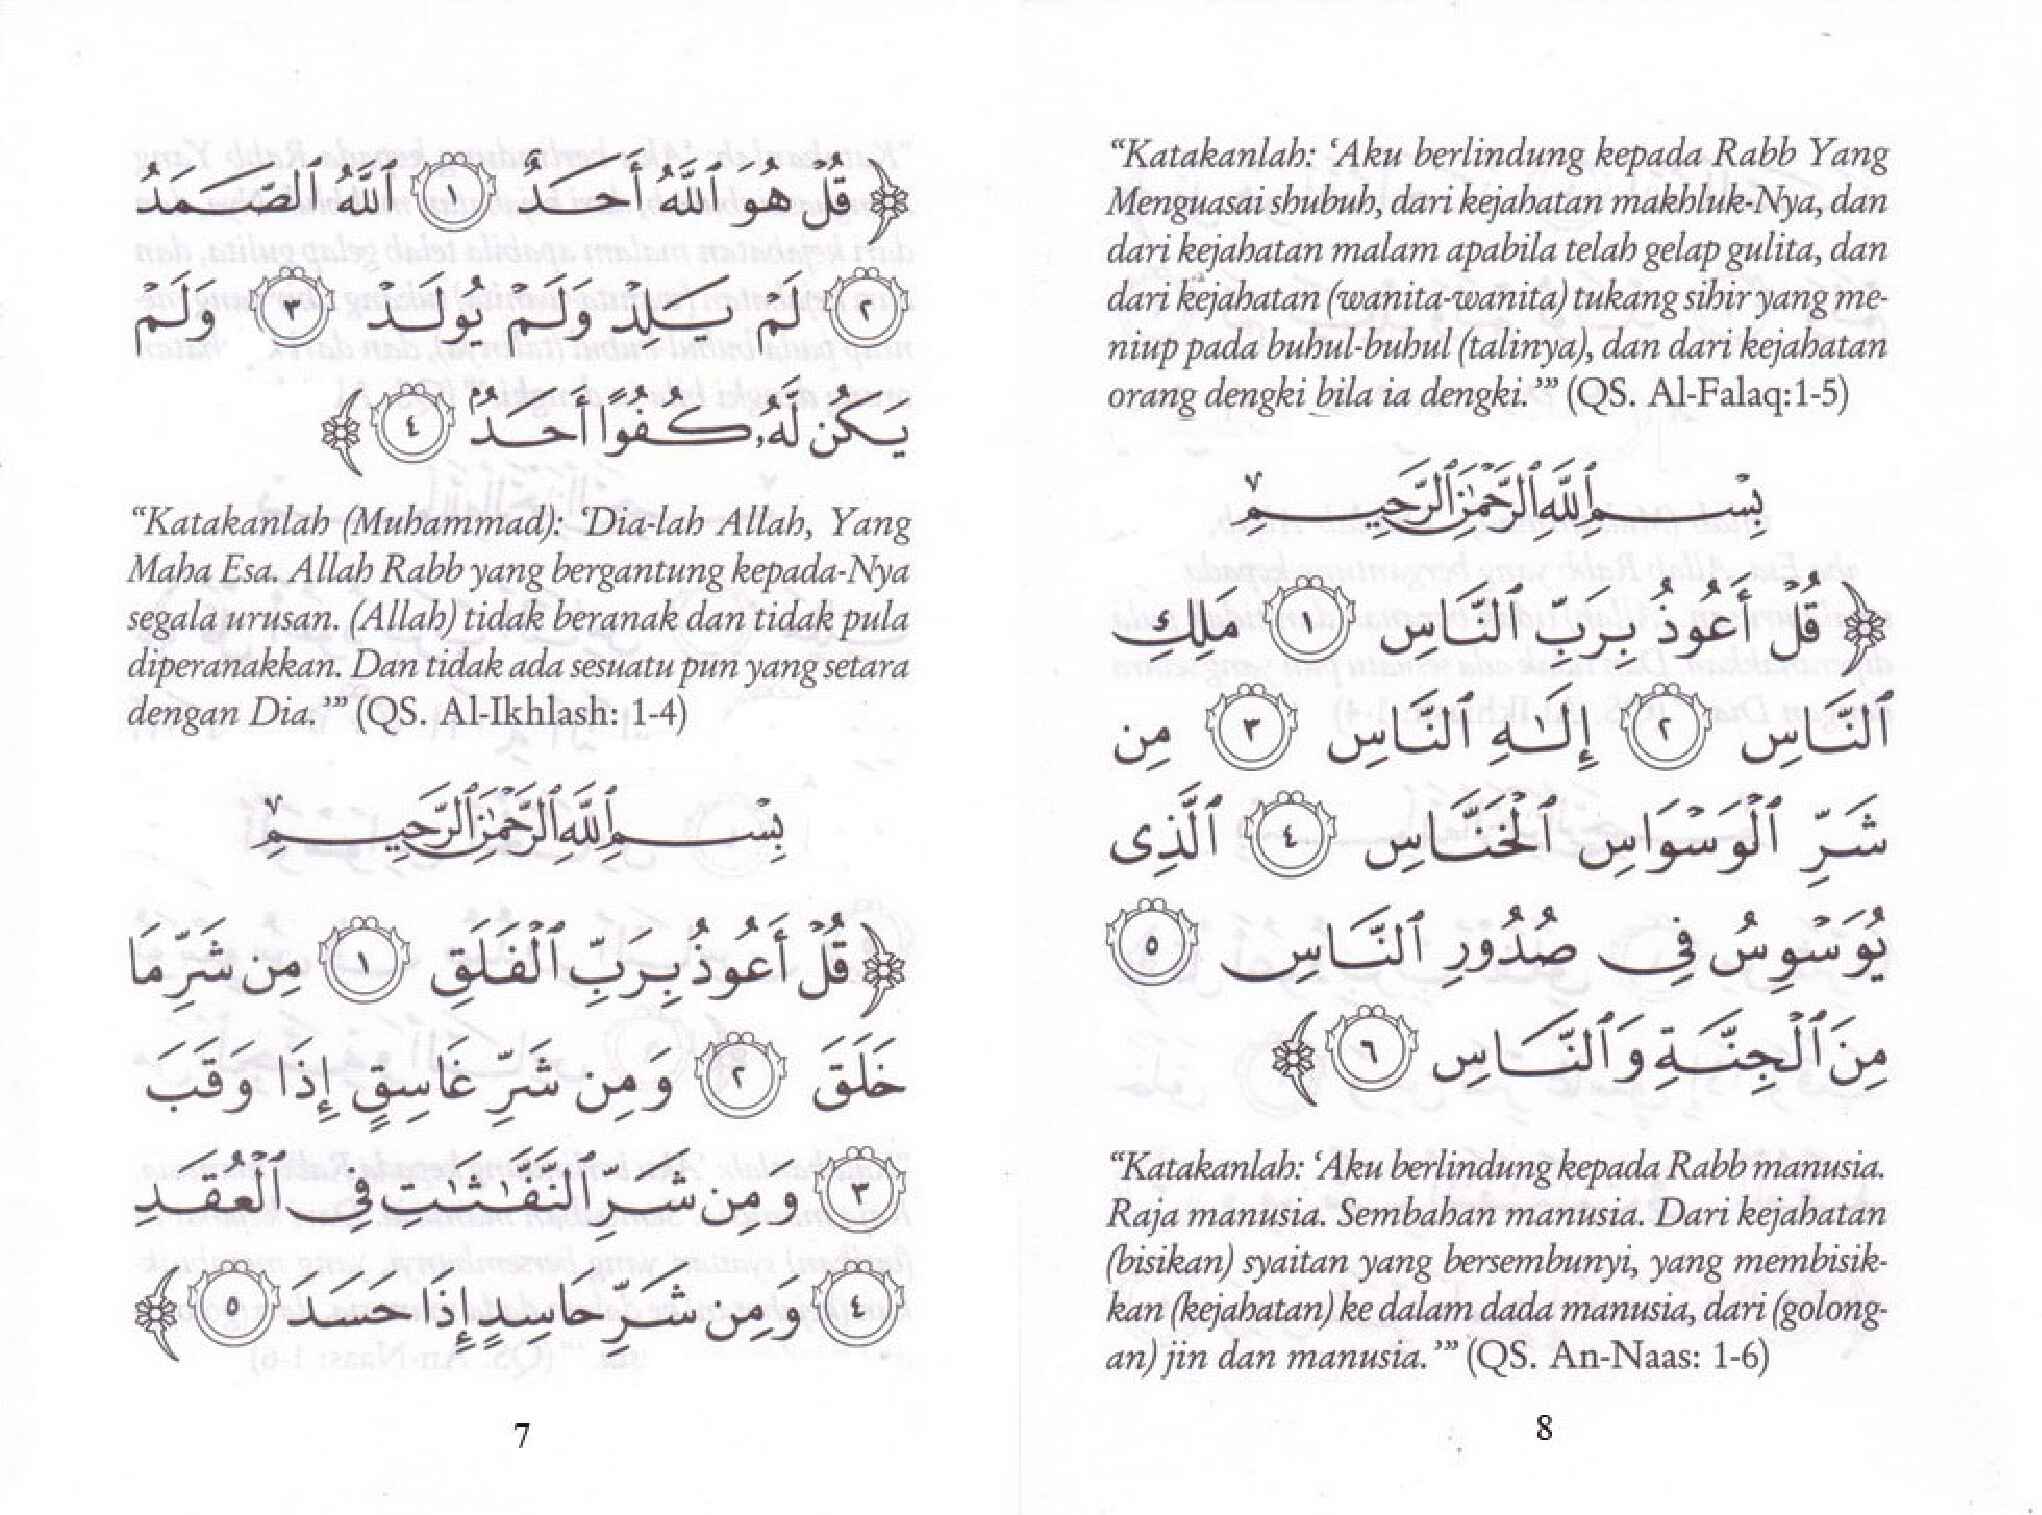 ﴿ قُلْ هُوَ ٱللَّهُ أَحَدٌ ١ ٱللَّهُ ٱلصَّمَدُ
٢ لَمْ يَلِدْ وَلَمْ يُولَدْ ٣ وَلَمْ
يَكُن لَّهُۥ كُفُوًا أَحَدٌۢ ٤ ﴾
“Katakanlah (Muhammad): ‘Dia-lah Allah, Yang
Maha Esa. Allah Rabb yang bergantung kepada-Nya
segala urusan. (Allah) tidak beranak dan tidak pula
diperanakkan. Dan tidak ada sesuatu pun yang setara
dengan Dia.’” (QS. Al-Ikhlash: 1-4)
بِسْمِ ٱللَّهِ ٱلرَّحْمَٰنِ ٱلرَّحِيمِ
﴿ قُلْ أَعُوذُ بِرَبِّ ٱلْفَلَقِ ١ مِن شَرِّ مَا
خَلَقَ ٢ وَمِن شَرِّ غَاسِقٍ إِذَا وَقَبَ
٣ وَمِن شَرِّ ٱلنَّفَّٰثَٰتِ فِى ٱلْعُقَدِ
٤ وَمِن شَرِّ حَاسِدٍ إِذَا حَسَدَ ٥ ﴾
7
“Katakanlah: ‘Aku berlindung kepada Rabb Yang
Menguasai shubuh, dari kejahatan makhluk-Nya, dan
dari kejahatan malam apabila telah gelap gulita, dan
dari kejahatan (wanita-wanita) tukang sihir yang me-
niup pada buhul-buhul (talinya), dan dari kejahatan
orang dengki bila ia dengki.’” (QS. Al-Falaq:1-5)
بِسْمِ ٱللَّهِ ٱلرَّحْمَٰنِ ٱلرَّحِيمِ
﴿ قُلْ أَعُوذُ بِرَبِّ ٱلنَّاسِ ١ مَلِكِ
ٱلنَّاسِ ٢ إِلَٰهِ ٱلنَّاسِ ٣ مِن
شَرِّ ٱلْوَسْوَاسِ ٱلْخَنَّاسِ ٤ ٱلَّذِى
يُوَسْوِسُ فِى صُدُورِ ٱلنَّاسِ ٥
مِنَ ٱلْجِنَّةِ وَٱلنَّاسِ ٦ ﴾
“Katakanlah: ‘Aku berlindung kepada Rabb manusia.
Raja manusia. Sembahan manusia. Dari kejahatan
(bisikan) syaitan yang bersembunyi, yang membisik-
kan (kejahatan) ke dalam dada manusia, dari (golong-
an) jin dan manusia.’” (QS. An-Naas: 1-6)
8